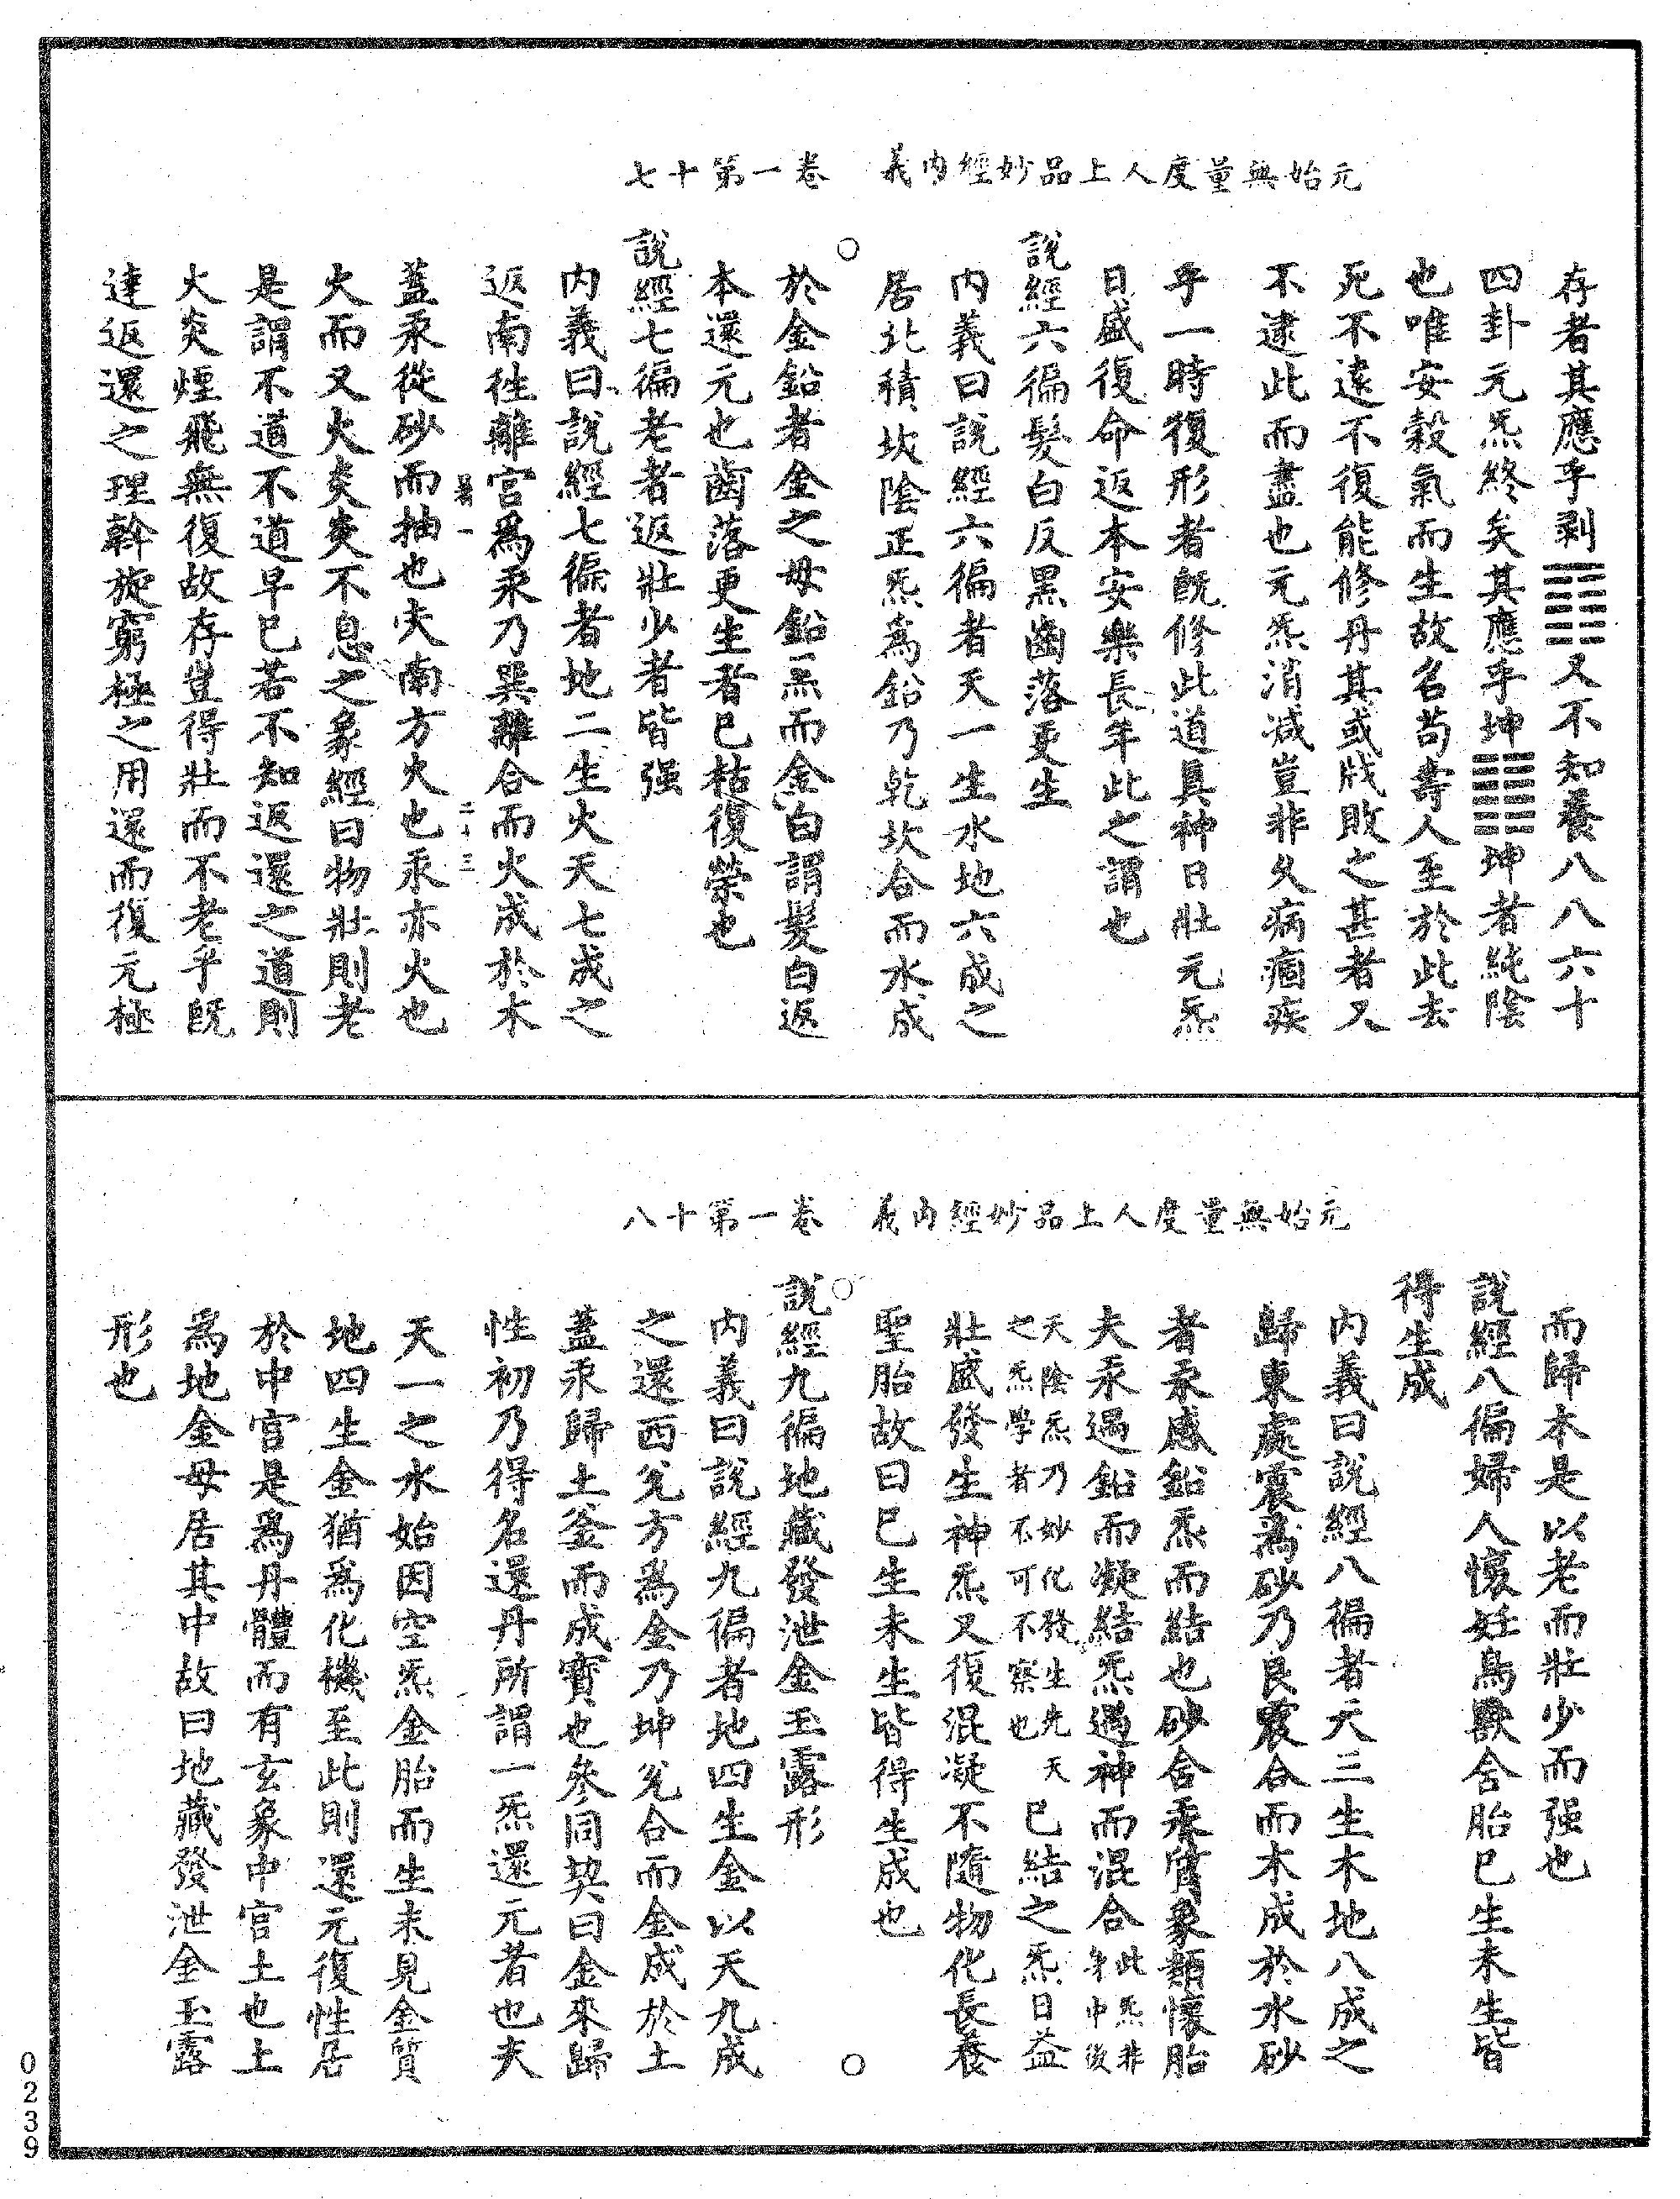 元始無量度人上品妙經內義　卷一第十七
存者其應乎剥䷖又不知養八八六十
四卦元炁終矣其應乎坤䷁坤者純陰
也唯安穀氣而生故名苟壽人至於此去
死不遠不復能修丹其或戕敗之甚者又
不逮此而盡也元炁消減豈非久病痼疾
乎一時復形者旣修此道眞神日壯元炁
日盛復命返本安樂長年此之謂也
說經六徧髮白反黑齒落更生
內義曰說經六徧者天一生水地六成之
居北積坎陰正炁爲鉛乃乾坎合而水成
於金鉛者金之母鉛黑而金白謂髮白返
本還元也齒落更生者已枯復榮也
說經七徧老者返壯少者皆强
內義曰說經七徧者地二生火天七成之
返南徃離宮爲汞乃巽離合而火成於木
蓋汞從砂而抽也夫南方火也汞亦火也
火而又火炎炎不息之象經曰物壯則老
是謂不道不道早已若不知返還之道則
火炎煙飛無復故存豈得壯而不老乎旣
達返還之理斡旋窮極之用還而復元極
元始無量度人上品妙經內義　卷一第十八
而歸本是以老而壯少而强也
說經八徧婦人懷妊鳥獸含胎已生未生皆
得生成
內義曰說經八徧者天三生木地八成之
歸東處震爲砂乃艮震合而木成於水砂
者汞感鉛炁而結也砂含汞質象類懷胎
夫汞遇鉛而凝結炁遇神而混合此炁非身中後
天陰炁乃妙化發生先天之炁學者不可不察也已結之炁日益
壯盛發生神炁又復混凝不隨物化長養
聖胎故曰已生未生皆得生成也
說經九徧地藏發泄金玉露形
內義曰說經九徧者地四生金以天九成
之還西兌方爲金乃坤兌合而金成於土
蓋汞歸土釜而成寳也參同契曰金來歸
性初乃得名還丹所謂一炁還元者也夫
天一之水始因空炁金胎而生未見金質
地四生金猶爲化機至此則還元復性居
於中宮是爲丹體而有玄象中宮土也土
爲地金母居其中故曰地藏發泄金玉露
形也
0239